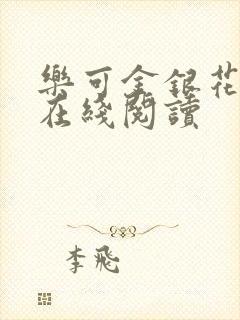 樂可金銀花
在綫閱讀
李飛